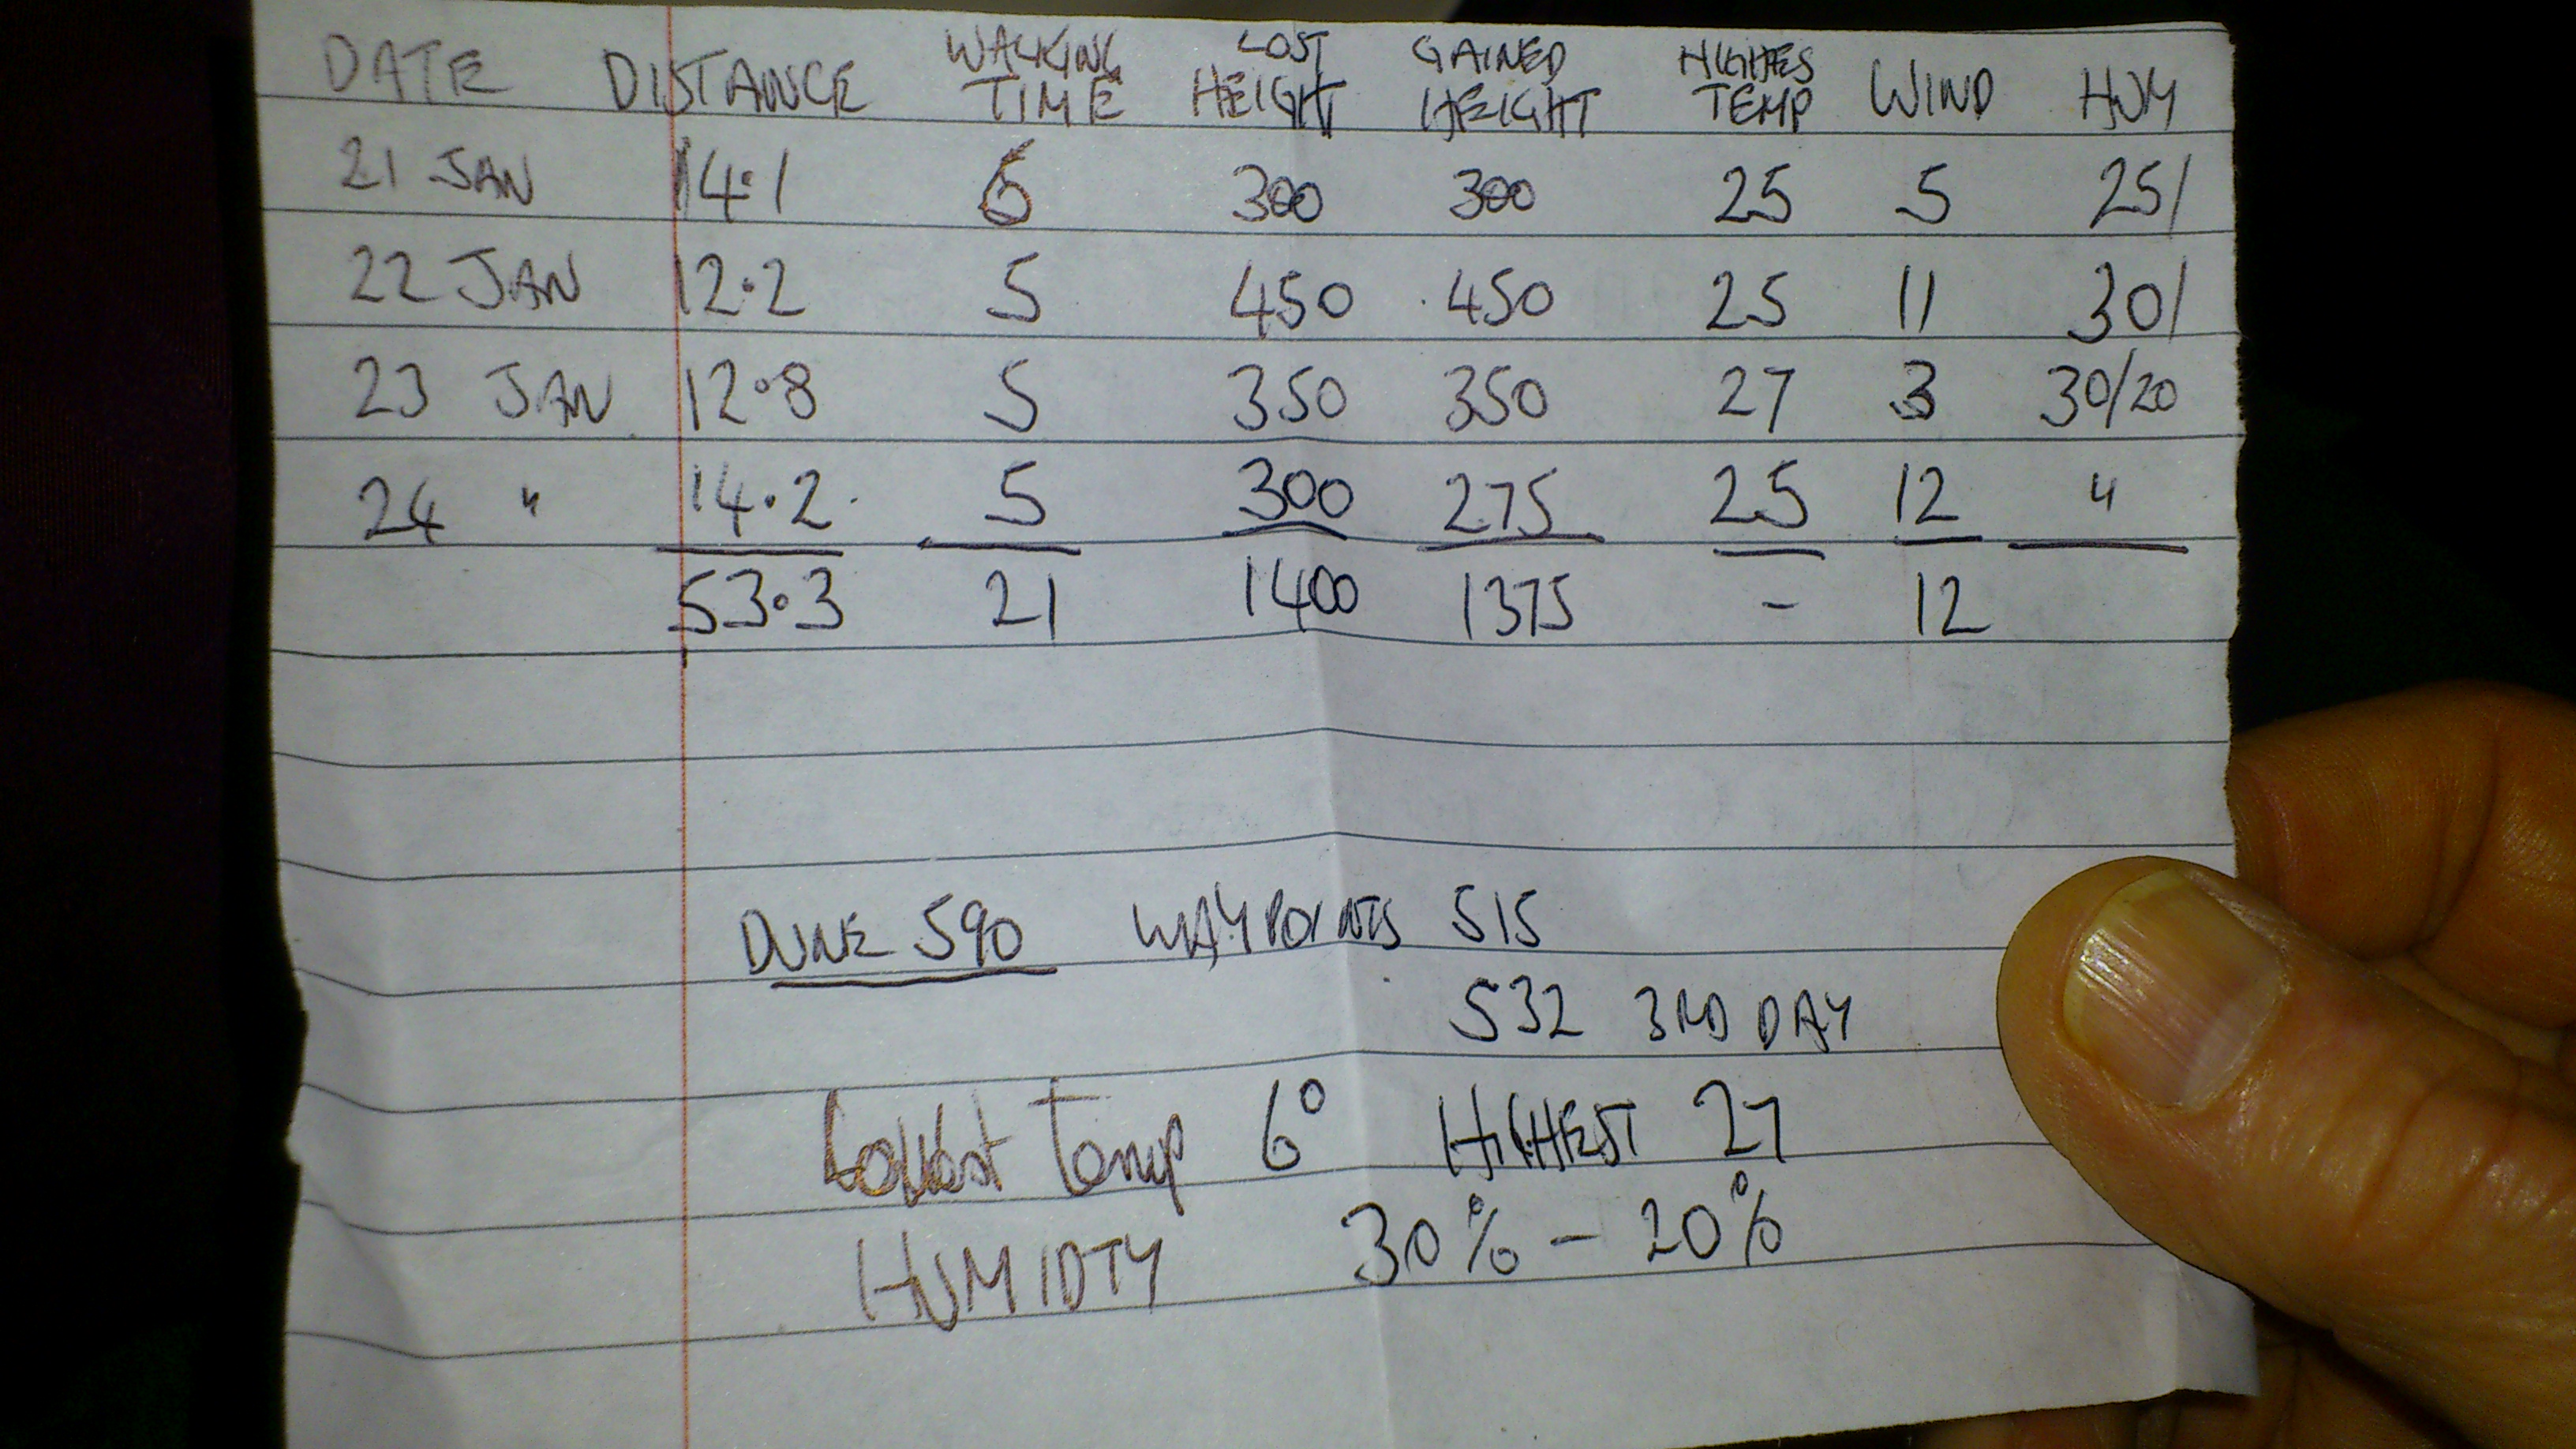 DATE DISTANCE WALKING TIME LOST HEIGHT GAINED HEIGHT HIGHES TEMP WIND HUM
21 JAN 14.1 6 300 300 25 5 25/
22 JAN 12.2 5 450 450 25 11 30/
23 JAN 12.8 5 350 350 27 3 30/20
24 " 14.2 5 300 275 25 12 "
53.3 21 1400 1375 - 12
DUNE 590 WAYPOINTS 515
532 3RD DAY
Lowest Temp 6° HIGHEST 27
HUMIDTY 30% - 20%